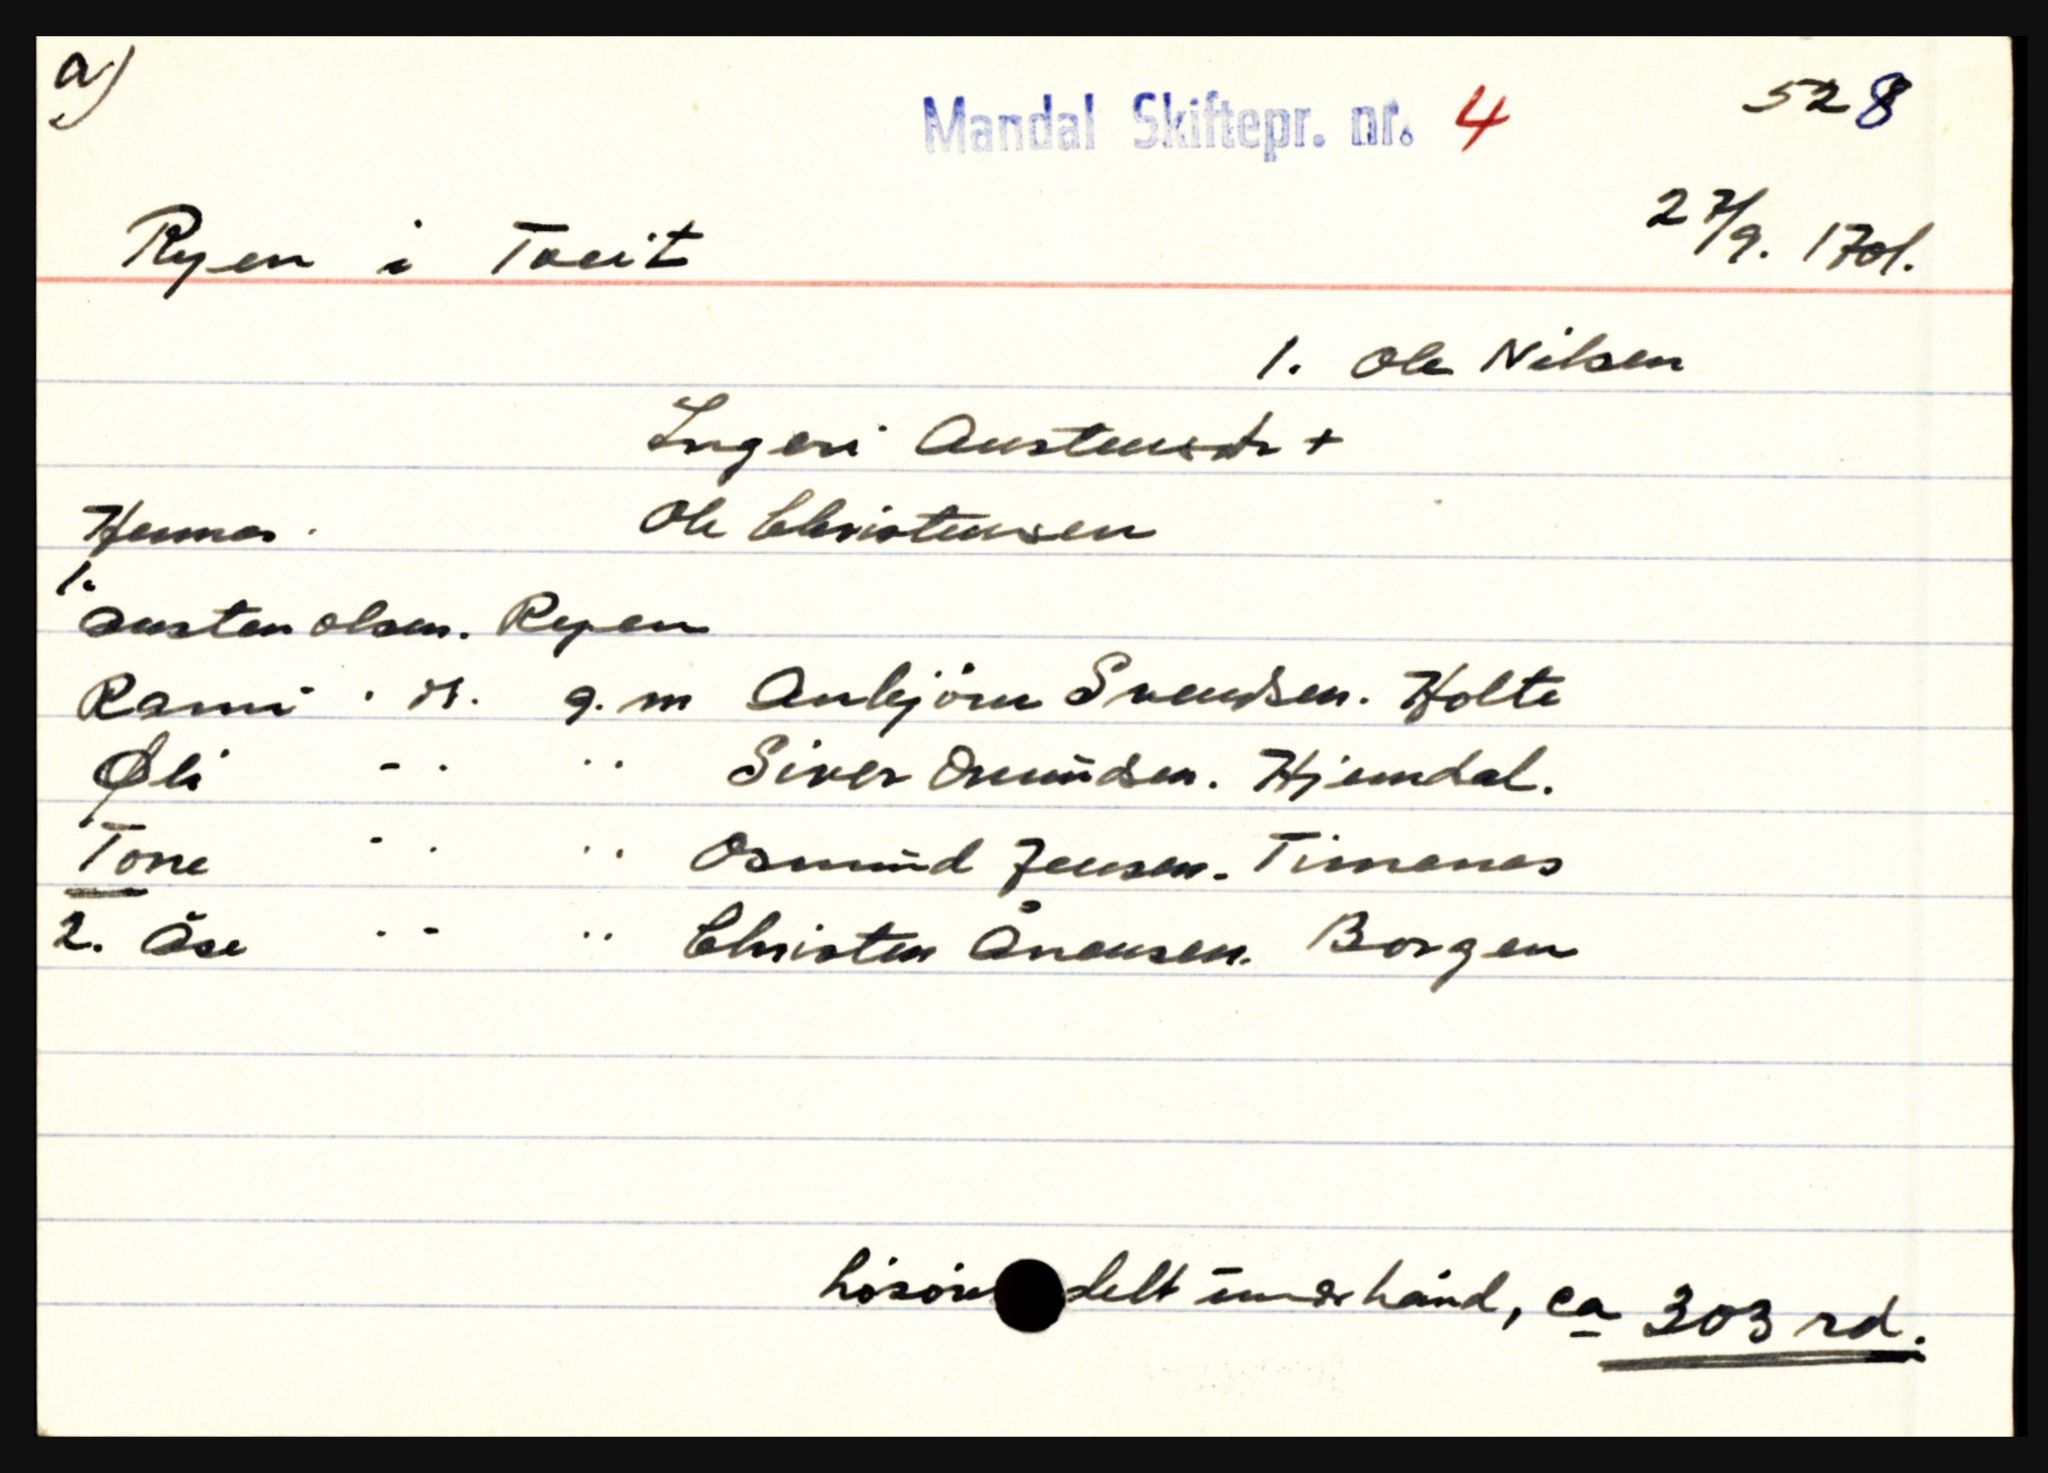 a)
Mandal Skiftepr. nr. 4
528
Ryen i Tveit
27/9. 1701.
1. Ole Nilsen
Ingeri Austensdr +
Hennes. Ole Christensen
1.
Austen Olsen. Ryen
Ranni . D. g. m Anbjörn Svendsen. Holte
Øli - . " Siver Omŭndsen. Hjemdal.
Tone - . " Osmŭnd Jensen. Timenes
2. Åse . - " Christen Ånensen. Borgen
Lösöre delt ŭnder hånd, ca 303 rd.